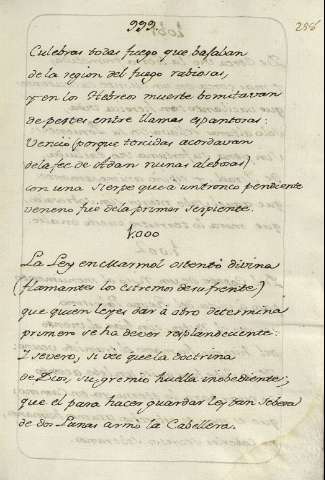 999.
256
Culebras todas fuego que bajaban
de la region del fuego rabiosas,
y en los Hebreos muerte bomitavan
de pestes entre llamas espantosas:
Vencio (porque torcidas acordavan
de la fee de Adan ruinas alebosas)
con una sierpe que à un tronco pendiente
veneno fué de la primer serpiente.
1.000
La Ley en Marmol ostentò divina
(flamantes los estremos de su frente)
que quien leyes dar à otro determina
primero se ha de ver resplandeciente:
I severo, si vèe que la doctrina
de Dios, su gremio huella inobediente;
que el para hacer guardar ley tan sebera
de dos Lunas armò la Cabellera.